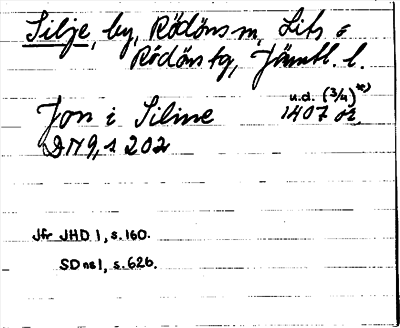 Silje, by, Rödöns sn, Lits o
Rödöns tg, Jämtl. l.
u.d. (3/4) *)
Jon i Siline 1407 or.
DN 9,1 202
Jfr JHD 1, s. 160.
SDns 1, s. 626.